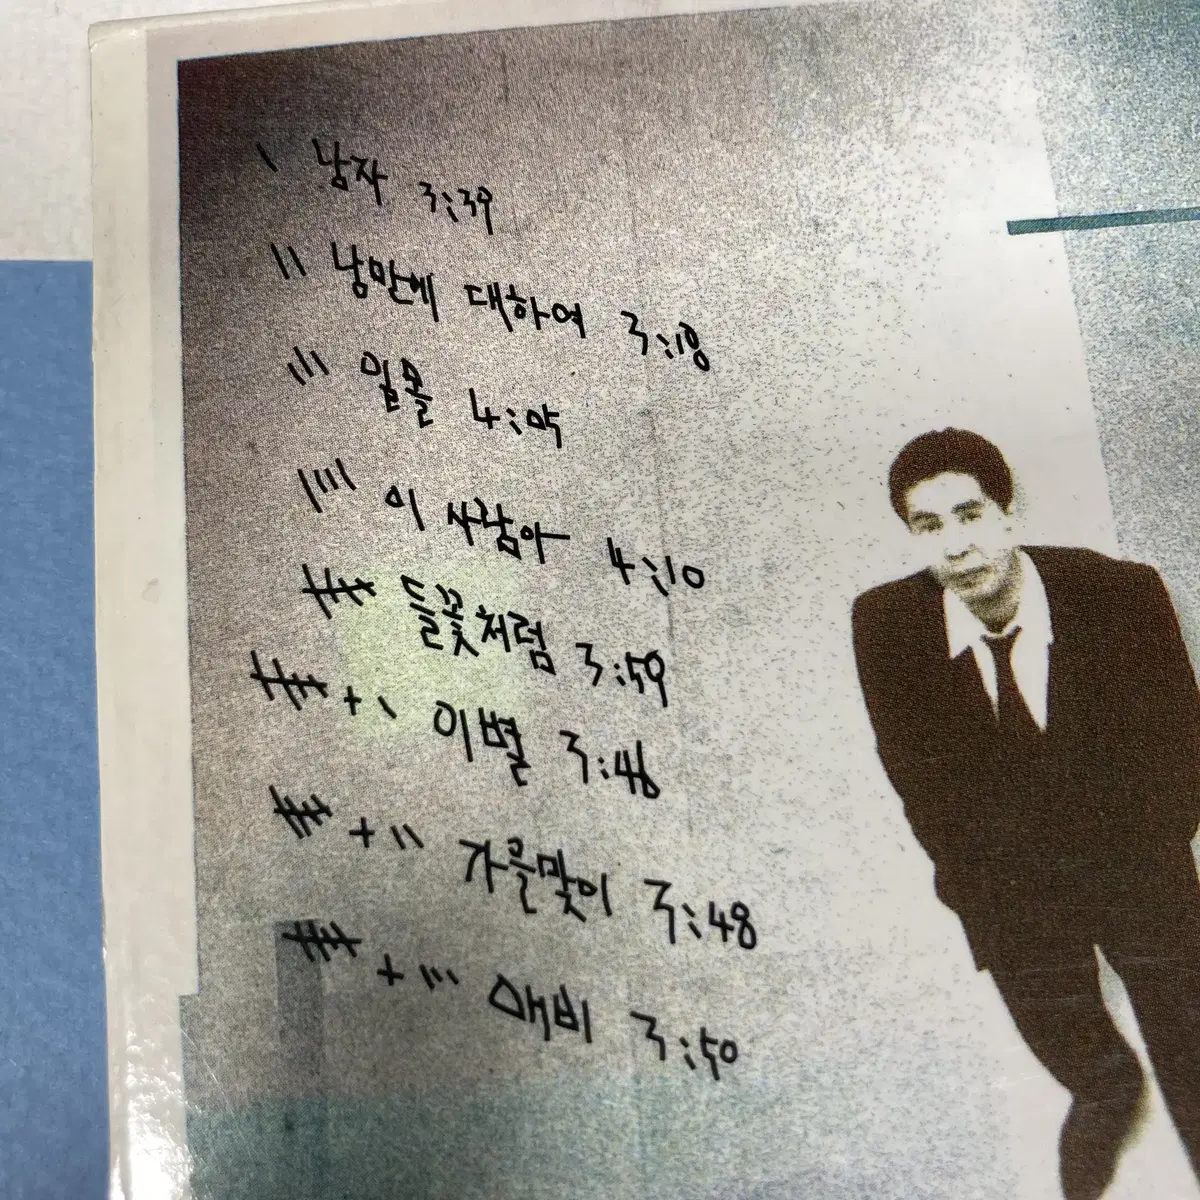 \ 남자 3:39
\\ 낭만에 대하여 3:18
\\\ 일몰 4:05
\\\\ 이 사람아 4:10
卌 들꽃처럼 3:59
卌 + \ 이별 3:46
卌 + \\ 가을맞이 3:48
卌 + \\\ 애비 3:50